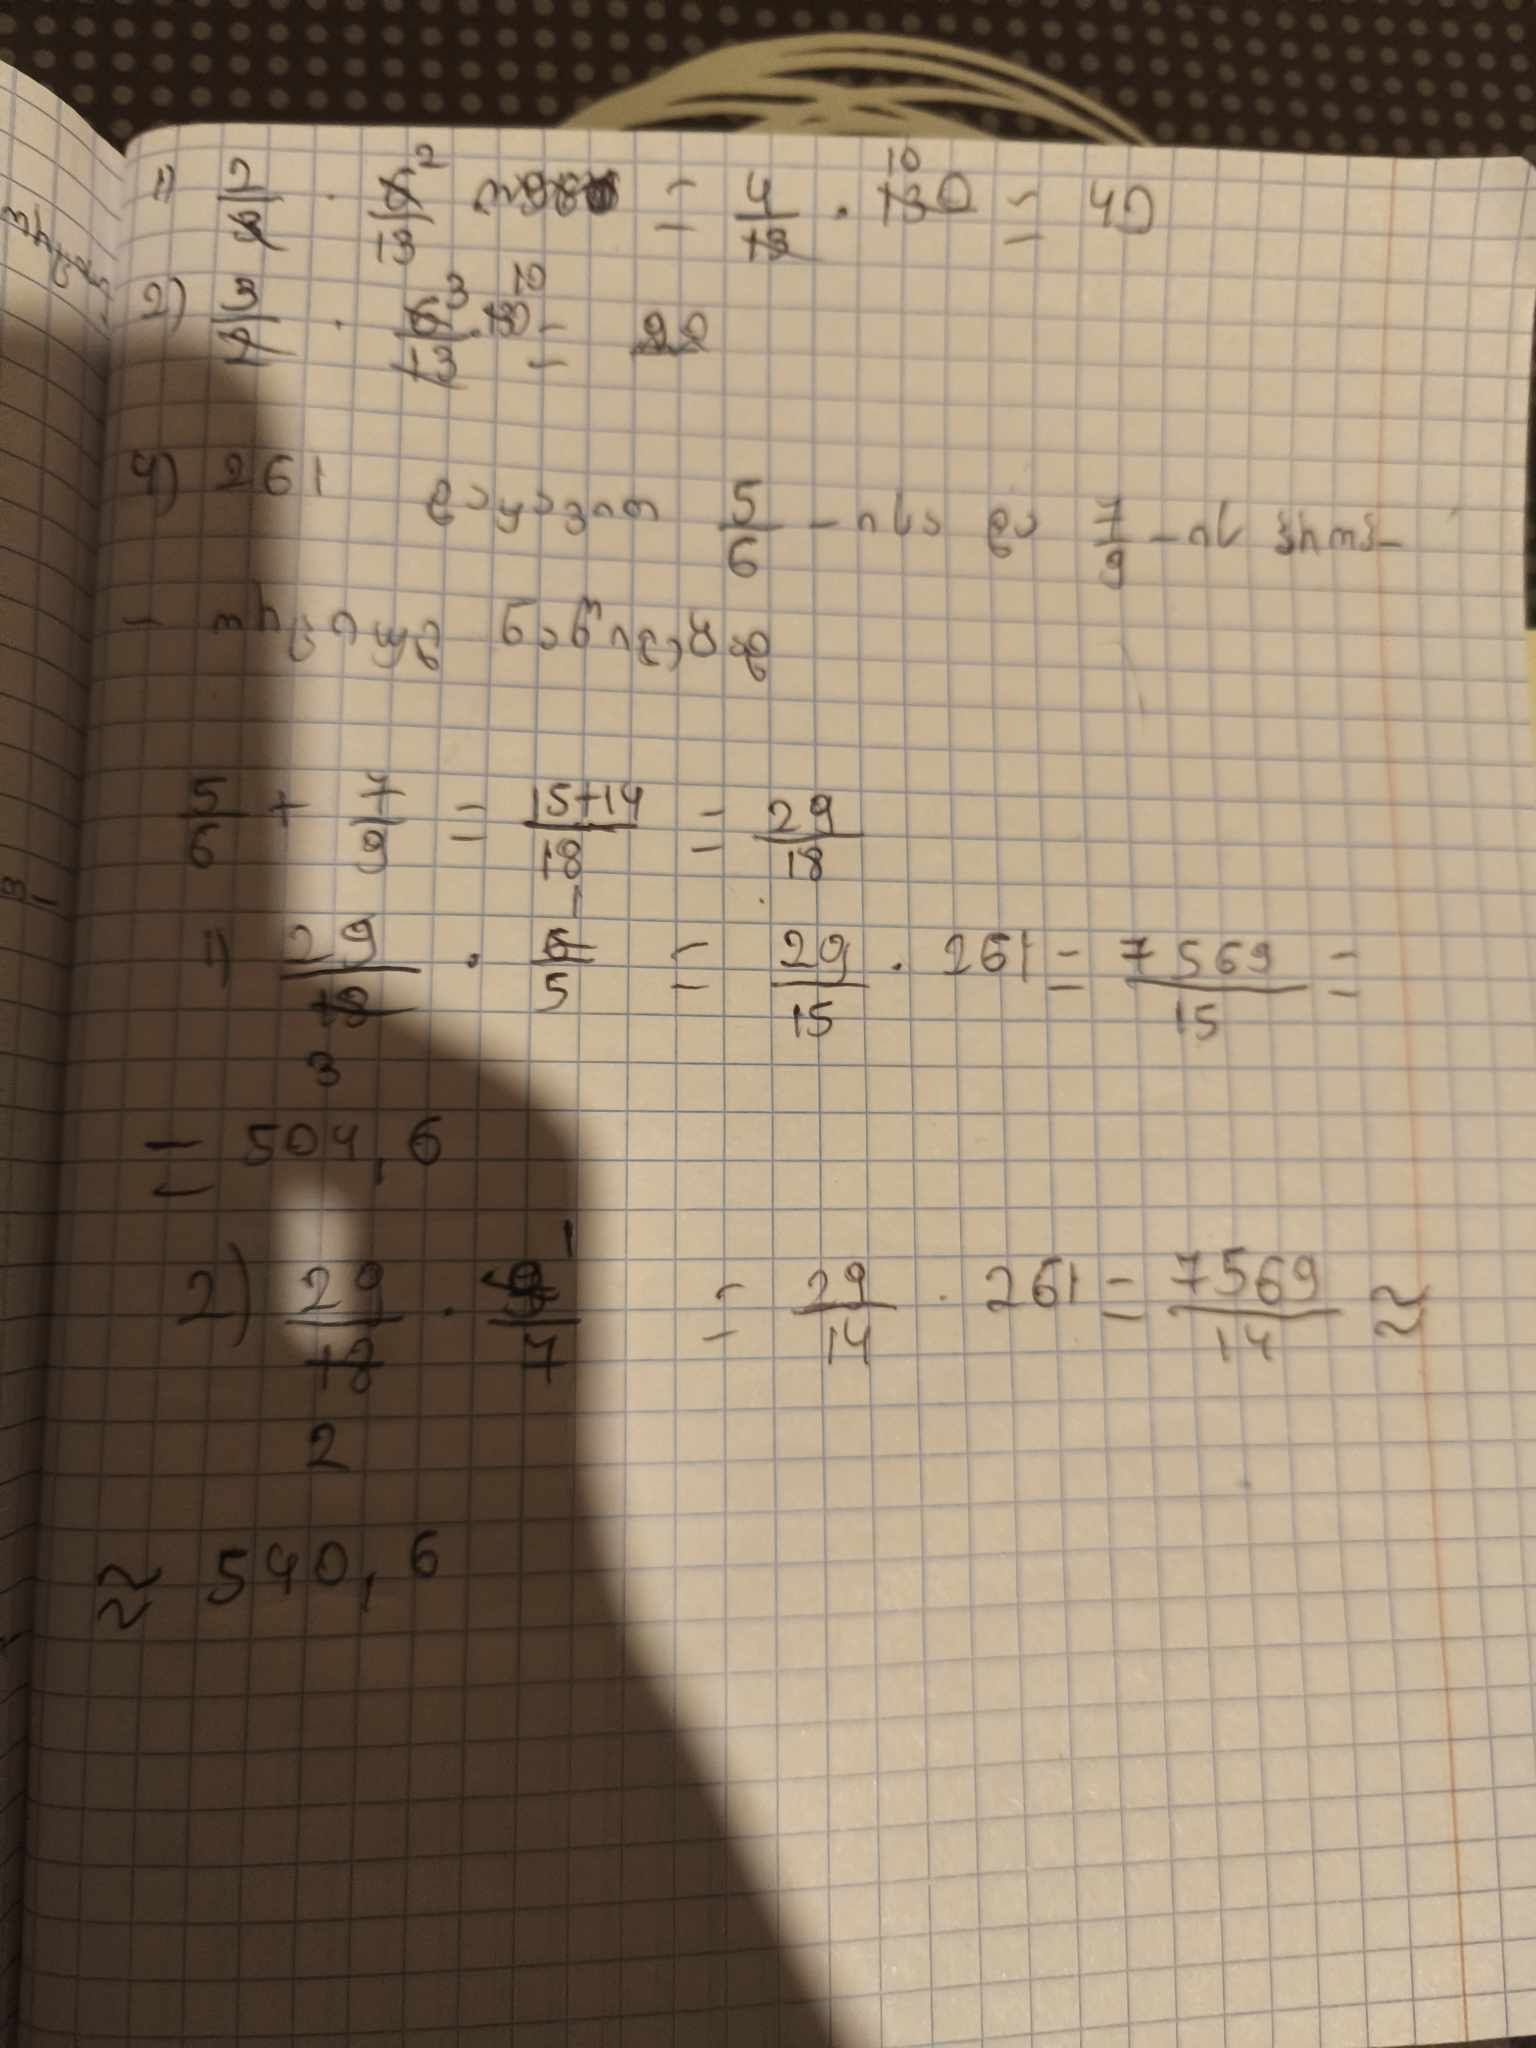 1) 2/3 · 6/13 = 4/13 · 130 = 40
2) 3/2 · 6/13 · 130 =
4) 261 დაყავით 5/6 -ისა და 7/9 -ის
5/6 + 7/9 = 15+14/18 = 29/18
1) 29/18 · 6/5 = 29/15 · 261 = 7569/15 =
= 504,6
2) 29/18 · 9/7 = 29/14 · 261 = 7569/14 ≈
≈ 540,6